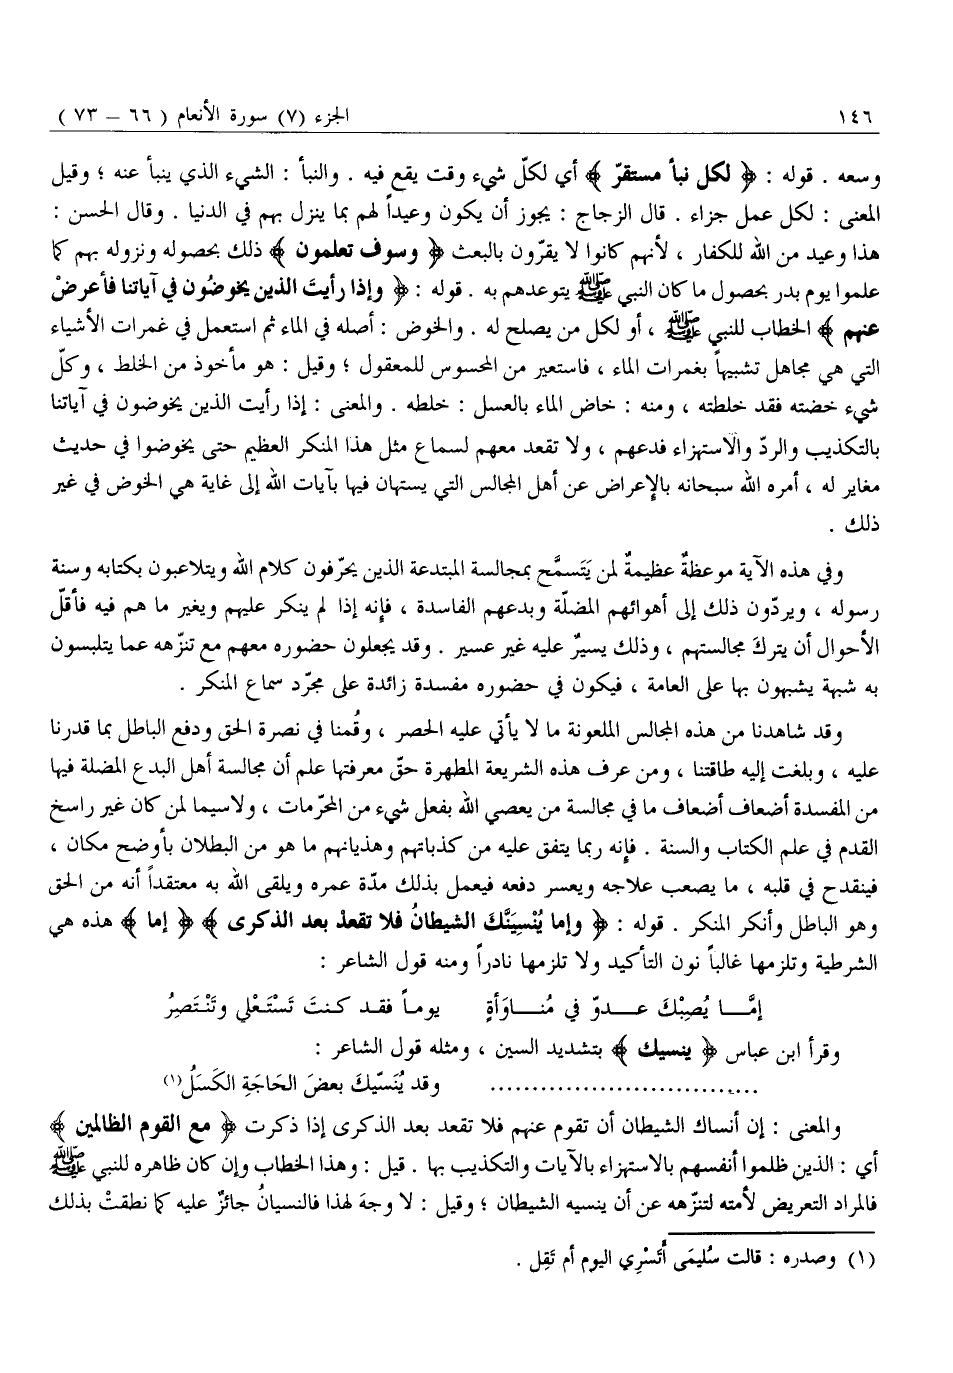 ١٤٦
الجزء (٧) سورة الأنعام ( ٦٦ – ٧٣ )
وسعه . قوله : ﴿ لكل نبأ مستقرّ ﴾ أي لكلّ شيء وقت يقع فيه . والنبأ : الشيء الذي ينبأ عنه ؛ وقيل
المعنى : لكل عمل جزاء . قال الزجاج : يجوز أن يكون وعيداً لهم بما ينزل بهم في الدنيا . وقال الحسن :
هذا وعيد من الله للكفار ، لأنهم كانوا لا يقرّون بالبعث ﴿ وسوف تعلمون ﴾ ذلك بحصوله ونزوله بهم كما
علموا يوم بدر بحصول ما كان النبي ﷺ يتوعدهم به . قوله : ﴿ وإذا رأيتَ الذين يخوضُون في آياتنا فأعرضْ
عنهم ﴾ الخطاب للنبي ﷺ ، أو لكل من يصلح له . والخوض : أصله في الماء ثم استعمل في غمرات الأشياء
التي هي مجاهل تشبيهاً بغمرات الماء ، فاستعير من المحسوس للمعقول ؛ وقيل : هو مأخوذ من الخلط ، وكلّ
شيء خضته فقد خلطته ، ومنه : خاض الماء بالعسل : خلطه . والمعنى : إذا رأيت الذين يخوضون في آياتنا
بالتكذيب والردّ والاستهزاء فدعهم ، ولا تقعد معهم لسماع مثل هذا المنكر العظيم حتى يخوضوا في حديث
مغاير له ، أمره الله سبحانه بالإعراض عن أهل المجالس التي يستهان فيها بآيات الله إلى غاية هي الخوض في غير
ذلك .
وفي هذه الآية موعظةٌ عظيمةٌ لمن يَتَسمَّح بمجالسة المبتدعة الذين يحرّفون كلام الله ويتلاعبون بكتابه وسنة
رسوله ، ويردّون ذلك إلى أهوائهم المضلّة وبدعهم الفاسدة ، فإنه إذا لم ينكر عليهم ويغير ما هم فيه فأقلّ
الأحوال أن يتركَ مجالستهم ، وذلك يسيرٌ عليه غير عسير . وقد يجعلون حضوره معهم مع تنزّهه عما يتلبسون
به شبهة يشبهون بها على العامة ، فيكون في حضوره مفسدة زائدة على مجرّد سماع المنكر .
وقد شاهدنا من هذه المجالس الملعونة ما لا يأتي عليه الحصر ، وقُمنا في نصرة الحق ودفع الباطل بما قدرنا
عليه ، وبلغت إليه طاقتنا ، ومن عرف هذه الشريعة المطهرة حقّ معرفتها علم أن مجالسة أهل البدع المضلة فيها
من المفسدة أضعاف أضعاف ما في مجالسة من يعصي الله بفعل شيء من المحرّمات ، ولاسيما لمن كان غير راسخ
القدم في علم الكتاب والسنة . فإنه ربما يتفق عليه من كذباتهم وهذيانهم ما هو من البطلان بأوضح مكان ،
فينقدح في قلبه ، ما يصعب علاجه ويعسر دفعه فيعمل بذلك مدّة عمره ويلقى الله به معتقداً أنه من الحق
وهو الباطل وأنكر المنكر . قوله : ﴿ وإما يُنْسِيَنَّكَ الشيطانُ فلا تقعدْ بعد الذكرى ﴾ ﴿ إما ﴾ هذه هي
الشرطية وتلزمها غالباً نون التأكيد ولا تلزمها نادراً ومنه قول الشاعر :
إمَّا يُصِبْكَ عدوّ في مُناوَأةٍ يوماً فقد كنتَ تَسْتَعْلي وتَنْتَصِرُ
وقرأ ابن عباس ﴿ ينسيك ﴾ بتشديد السين ، ومثله قول الشاعر :
................................ وقد يُنَسّيكَ بعضَ الحَاجَةِ الكَسَلُ(١)
والمعنى : إن أنساك الشيطان أن تقوم عنهم فلا تقعد بعد الذكرى إذا ذكرت ﴿ مع القوم الظالمين ﴾
أي : الذين ظلموا أنفسهم بالاستهزاء بالآيات والتكذيب بها . قيل : وهذا الخطاب وإن كان ظاهره للنبي ﷺ
فالمراد التعريض لأمته لتنزّهه عن أن ينسيه الشيطان ؛ وقيل : لا وجهَ لهذا فالنسيانُ جائزٌ عليه كما نطقتْ بذلك
(١) وصدره : قالت سُليمَى أتَسْرِي اليوم أم تَقِل .